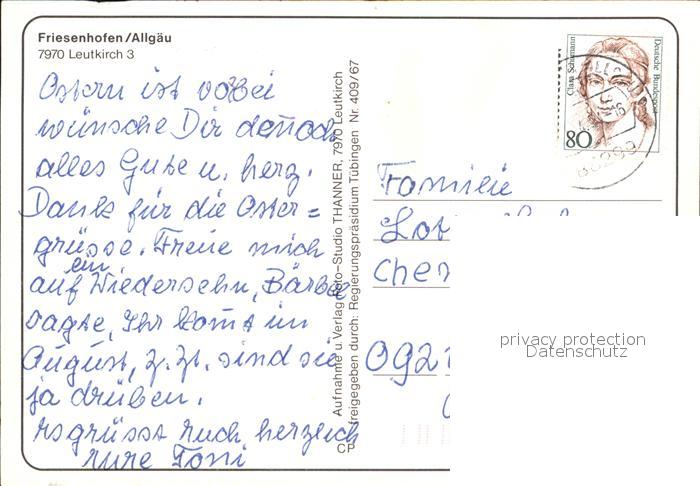 Friesenhofen/Allgäu
7970 Leutkirch 3
Ostern ist vobei
wünsche Dir dennoch
alles Gute u. herz.
Dank für die Oster=
grüsse. Freue mich
ein
auf Wiedersehn, Bärbel
sagte, Ihr komt im
August, z.Zt. sind sie
ja drüben.
Es grüsst Euch herzlich
Eure Toni
Aufnahme u. Verlag Foto-Studio THANNER, 7970 Leutkirch
freigegeben durch: Regierungspräsidium Tübingen Nr. 409/67
CP
Clara Schumann
Deutsche Bundespost
80
88299
Familie
Lot
Chem
092
privacy protection
Datenschutz